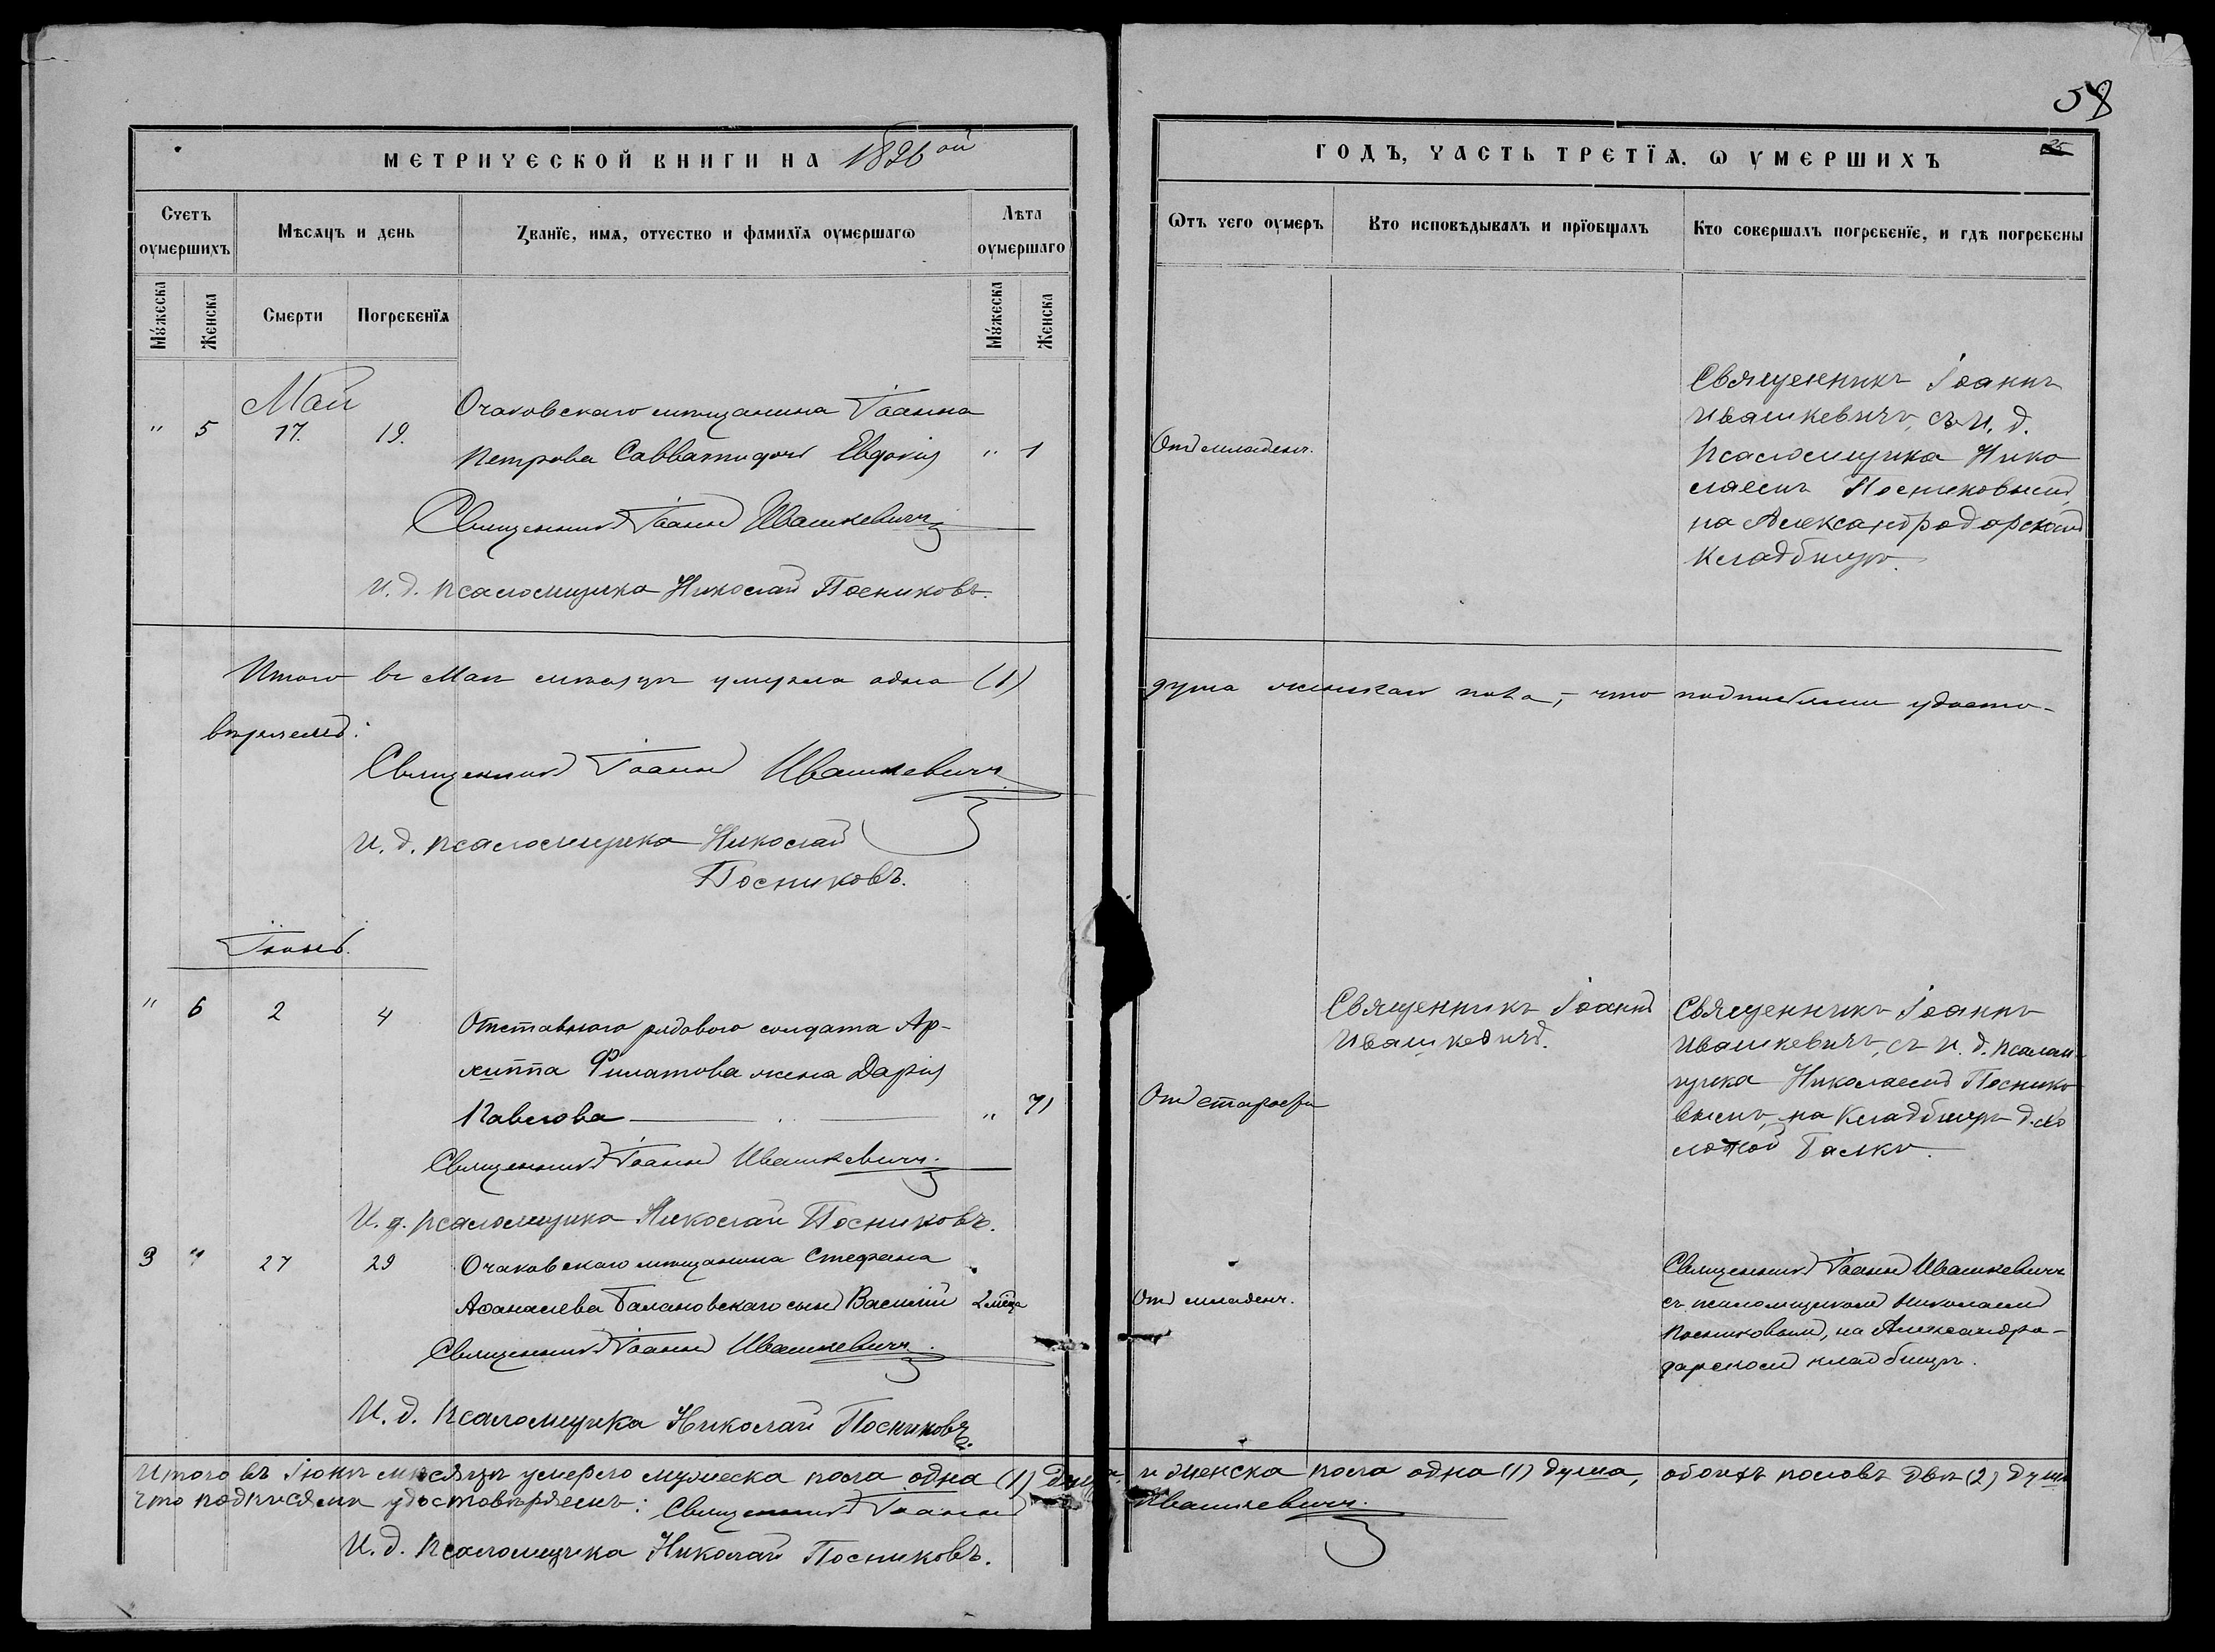 58
МЕТРИЧЕСКОЙ КНИГИ НА 1896 ой
ГОДЪ, ЧАСТЬ ТРЕТЇѦ. Ѡ УМЕРШИХЪ
Счетъ оумершихъ
Мѣсѧцъ и день
Званїе, имѧ, отчество и фамилїѧ оумершагѡ
Лѣта оумершаго
Ѿтъ чего оумеръ
Кто исповѣдывалъ и прїобщалъ
Кто совершалъ погребенїе, и гдѣ погребены
Мꙋжеска
Женска
Смерти
Погребенїѧ
Мꙋжеска
Женска
Май
" 5 17. 19.
Очаковскаго мѣщанина Іоанна
Петрова Савват дочь Евдокія " 1
Священникъ Іоаннъ Ивашкевичъ
И. д. псаломщика Николай Посниковъ.
Отъ младенч.
Священникъ Іоаннъ
Ивашкевичъ, съ и. д.
Псаломщика Нико
лаемъ Посниковымъ,
на Александродарскомъ
кладбищѣ.
Итого въ Маѣ мѣсяцѣ умерла одна (1)
душа женскаго пола, – что подписями удосто-
вѣряемъ:
Священникъ Іоаннъ Ивашкевичъ
И. д. псаломщика Николай
Посниковъ.
Іюнь.
" 6 2 4
Отставного рядового солдата Ар-
хиппа Филатова жена Дарія
Павлова " 71
Священникъ Іоаннъ Ивашкевичъ.
И. д. псаломщика Николай Посниковъ.
Отъ старости
Священникъ Іоаннъ
Ивашкевичъ.
Священникъ Іоаннъ
Ивашкевичъ, съ и. д. псалом-
щика Николаемъ Поснико
вымъ, на кладбищѣ д.
Балки.
3 " 27 29
Очаковскаго мѣщанина Стефана
Аѳанасіева Балановскаго сынъ Василій 2 мѣца
Священникъ Іоаннъ Ивашкевичъ.
И. д. псаломщика Николай Посниковъ.
Отъ младенч.
Священникъ Іоаннъ Ивашкевичъ
съ псаломщикомъ Николаемъ
Посниковымъ, на Александро-
дарскомъ кладбищѣ.
Итого въ Іюнѣ мѣсяцѣ умерло мужеска пола одна (1) душа и женска пола одна (1) душа, обоихъ половъ двѣ (2) души
что подписями удостовѣряемъ: Священникъ Іоаннъ Ивашкевичъ.
И. д. псаломщика Николай Посниковъ.